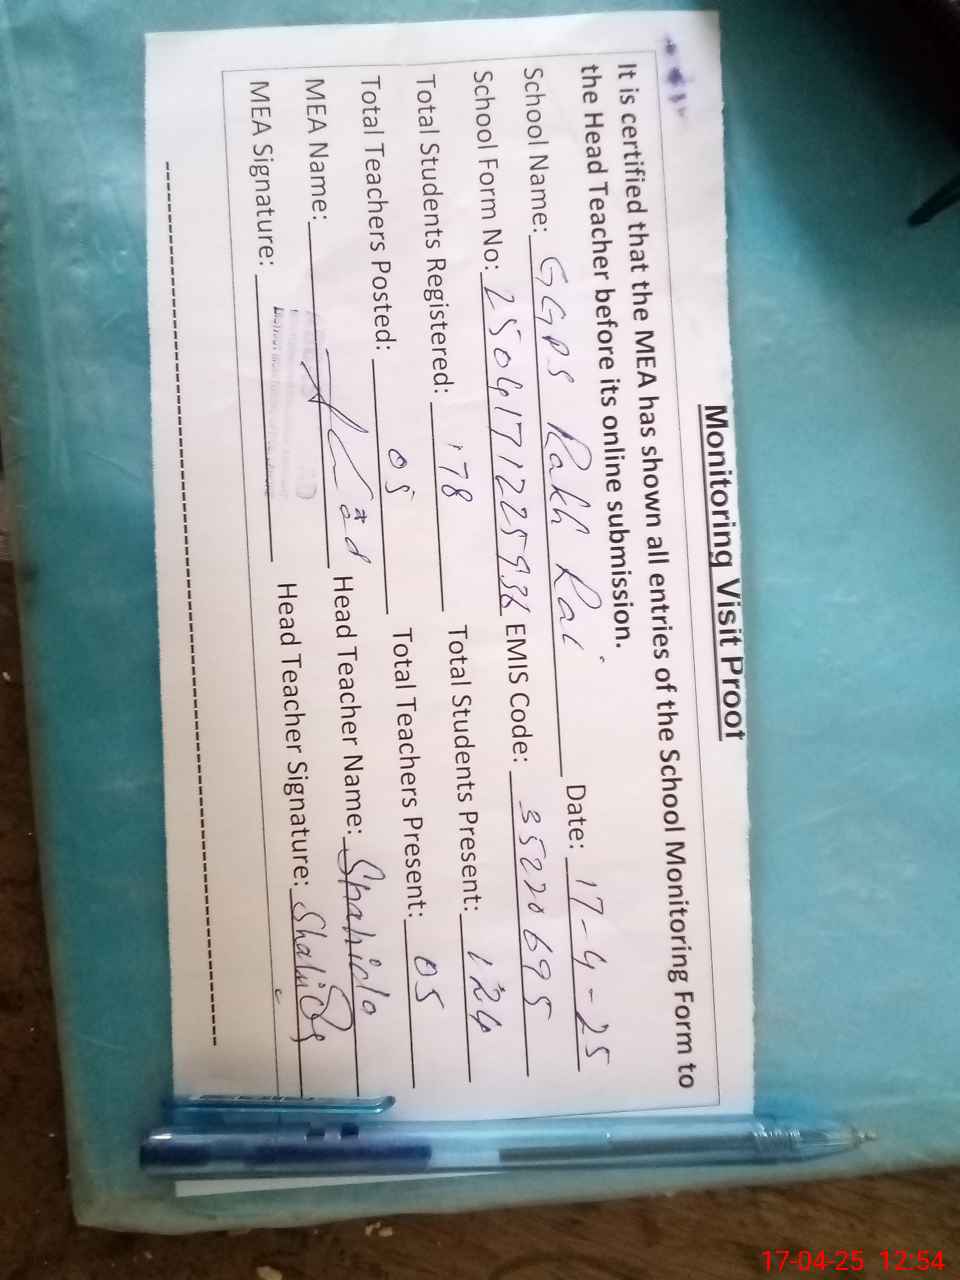 Monitoring Visit Proof
It is certified that the MEA has shown all entries of the School Monitoring Form to
the Head Teacher before its online submission.
School Name: GGPS Rakh Rai Date: 17-4-25
School Form No: 250417122593 EMIS Code: 35220695
Total Students Registered: 178 Total Students Present: 124
Total Teachers Posted: 05 Total Teachers Present: 05
MEA Name: Head Teacher Name: Shahida
MEA Signature: Head Teacher Signature: Shahida
17-04-25 12:54